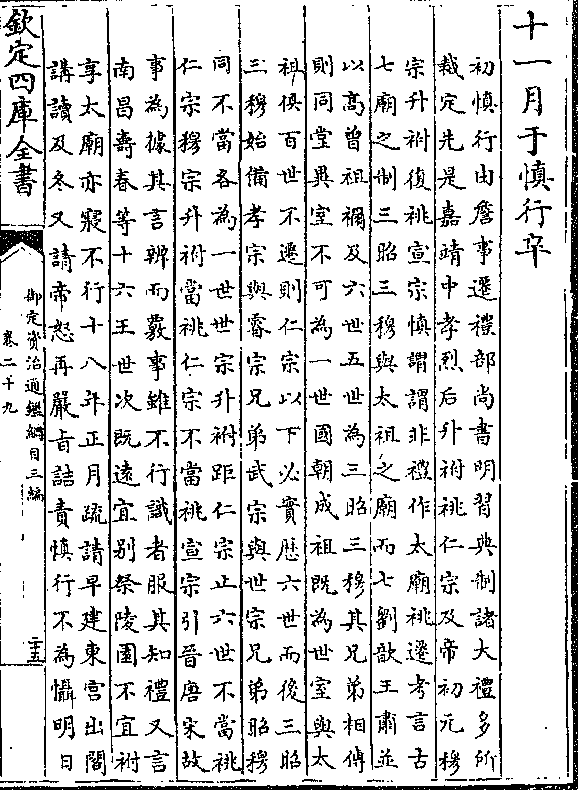 十一月于慎行卒
初慎行由詹事遷禮部尚書明習典制諸大禮多所
裁定先是嘉靖中孝烈后升祔祧仁宗及帝初元穆
宗升祔復祧宣宗慎謂謂非禮作太廟祧遷考言古
七廟之制三昭三穆與太祖之廟而七劉歆王肅並
以高曾祖禰及六世五世為三昭三穆其兄弟相傳
則同堂異室不可為一世國朝成祖既為世室與太
祖俱百世不遷則仁宗以下必實歷六世而後三昭
三穆始備孝宗與睿宗兄弟武宗與世宗兄弟昭穆
同不當各為一世世宗升祔距仁宗止六世不當祧
仁宗穆宗升祔當祧仁宗不當祧宣宗引晉唐宋故
事為據其言辨而覈事雖不行識者服其知禮又言
南昌壽春等十六王世次既遠宜別祭陵園不宜祔
享太廟亦寢不行十八年正月疏請早建東宮出閣
講讀及冬又請帝怒再嚴旨詰責慎行不為懾明日
欽定四庫全書
御定資治通鑑綱目三編
卷二十九
二五